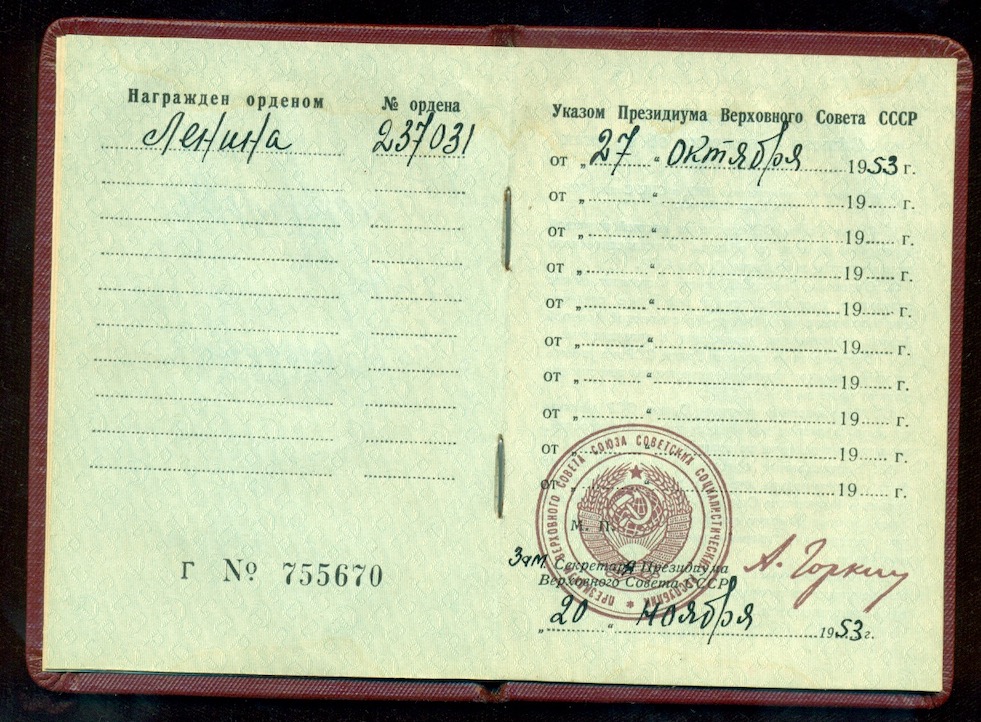 Награжден орденом
№ ордена
Ленина
237031
Г № 755670
Указом Президиума Верховного Совета СССР
от „ 27 “ октября 1953 г.
от „ “ 19 г.
от „ “ 19 г.
от „ “ 19 г.
от „ “ 19 г.
от „ “ 19 г.
от „ “ 19 г.
от „ “ 19 г.
от „ “ 19 г.
от „ “ 19 г.
М. П.
ПРЕЗИДИУМ ВЕРХОВНОГО СОВЕТА СОЮЗА СОВЕТСКИХ СОЦИАЛИСТИЧЕСКИХ РЕСПУБЛИК
Зам. Секретаря Президиума
Верховного Совета СССР
А. Горкин
„ 20 “ ноября 1953 г.